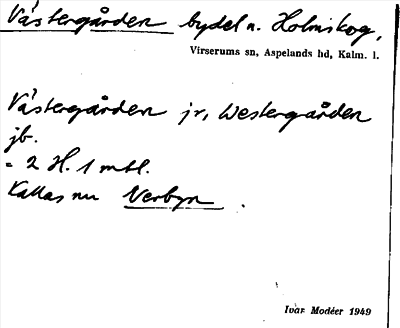 Västergården bydel n. Holmskog,
Virserums sn, Aspelands hd, Kalm. l.
Västergården jr, Westergården
jb.
= 2 H. 1 mtl.
Kallas nu Nerbyn.
Ivar Modéer 1949